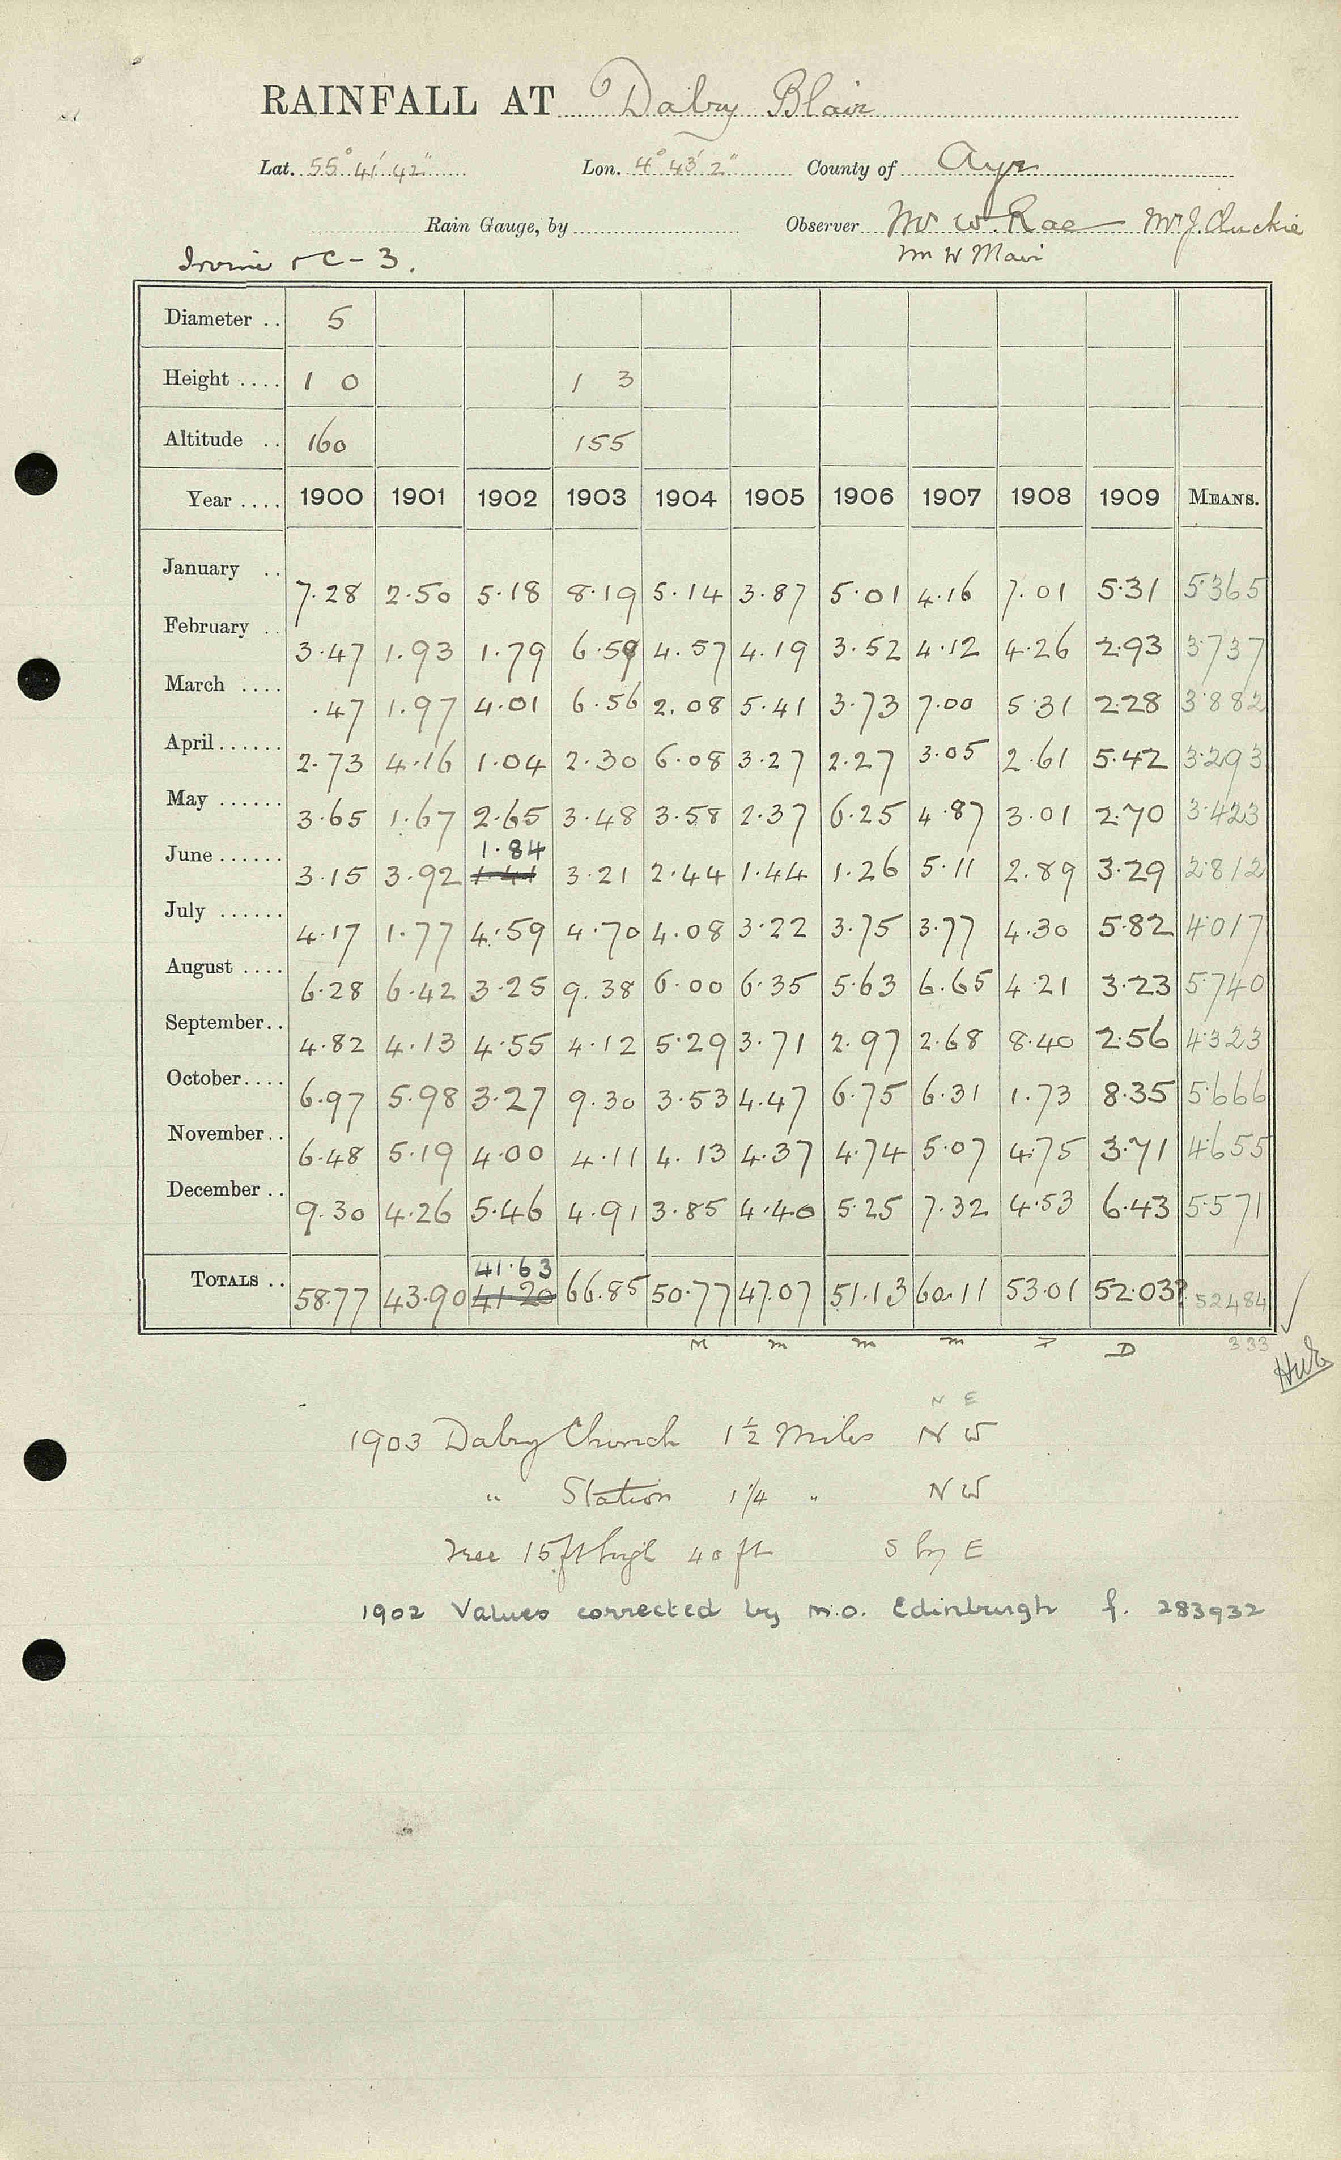 RAINFALL AT Dalry Blair
Lat. 55° 41' 42" Lon. 4° 43' 2" County of Ayr
Rain Gauge, by Observer Mr W. Rae Mr J. Cluckie
Irvine &c - 3. Mr W Mair
Diameter .. 5
Height .... 1 0 1 3
Altitude .. 160 155
Year .... 1900 1901 1902 1903 1904 1905 1906 1907 1908 1909 MEANS.
January .. 7.28 2.50 5.18 8.19 5.14 3.87 5.01 4.16 7.01 5.31 5.365
February .. 3.47 1.93 1.79 6.59 4.57 4.19 3.52 4.12 4.26 2.93 3.737
March .... .47 1.97 4.01 6.56 2.08 5.41 3.73 7.00 5.31 2.28 3.882
April...... 2.73 4.16 1.04 2.30 6.08 3.27 2.27 3.05 2.61 5.42 3.293
May ...... 3.65 1.67 2.65 3.48 3.58 2.37 6.25 4.87 3.01 2.70 3.423
1.84
June...... 3.15 3.92 1.41 3.21 2.44 1.44 1.26 5.11 2.89 3.29 2.812
July ...... 4.17 1.77 4.59 4.70 4.08 3.22 3.75 3.77 4.30 5.82 4.017
August .... 6.28 6.42 3.25 9.38 6.00 6.35 5.63 6.65 4.21 3.23 5.740
September.. 4.82 4.13 4.55 4.12 5.29 3.71 2.97 2.68 8.40 2.56 4.323
October.... 6.97 5.98 3.27 9.30 3.53 4.47 6.75 6.31 1.73 8.35 5.666
November.. 6.48 5.19 4.00 4.11 4.13 4.37 4.74 5.07 4.75 3.71 4.655
December .. 9.30 4.26 5.46 4.91 3.85 4.40 5.25 7.32 4.53 6.43 5.571
41.63
TOTALS .. 58.77 43.90 41.20 66.85 50.77 47.07 51.13 60.11 53.01 52.03? 52.484
M m m m D 333
N E
1903 Dalry Church 1½ Miles N W
" Station 1¼ " N W
Tree 15 ft high 40 ft S by E
1902 Values corrected by M.O. Edinburgh f. 283932